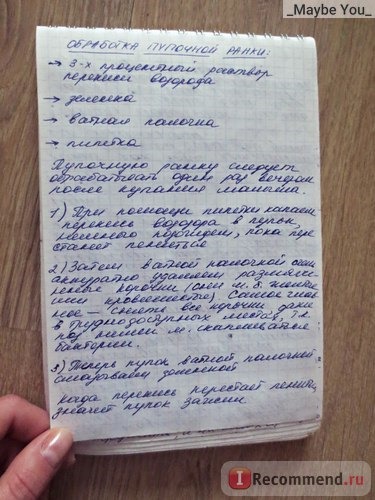 _Maybe You_
ОБРАБОТКА ПУПОЧНОЙ РАНКИ:
→ 3-х процентный раствор
перекиси водорода
→ зеленка
→ ватная палочка
→ пипетка
Пупочную ранку следует
обрабатывать один раз вечером
после купания малыша.
1) При помощи пипетки капаем
перекись водорода в пупок,
немного подождем, пока пере
станет пениться
2) Затем ватной палочкой
аккуратно удаляем размягчен
ные корочки (они м. б.
кровянистые). Самое глав
ное — снять все корочки даже
в труднодоступных местах, т.к.
под ними м. скапливаться
бактерии.
3) Теперь пупок ватной палочкой
смазываем зеленкой
Когда перекись перестает пениться,
значит пупок зажил
IRecommend.ru